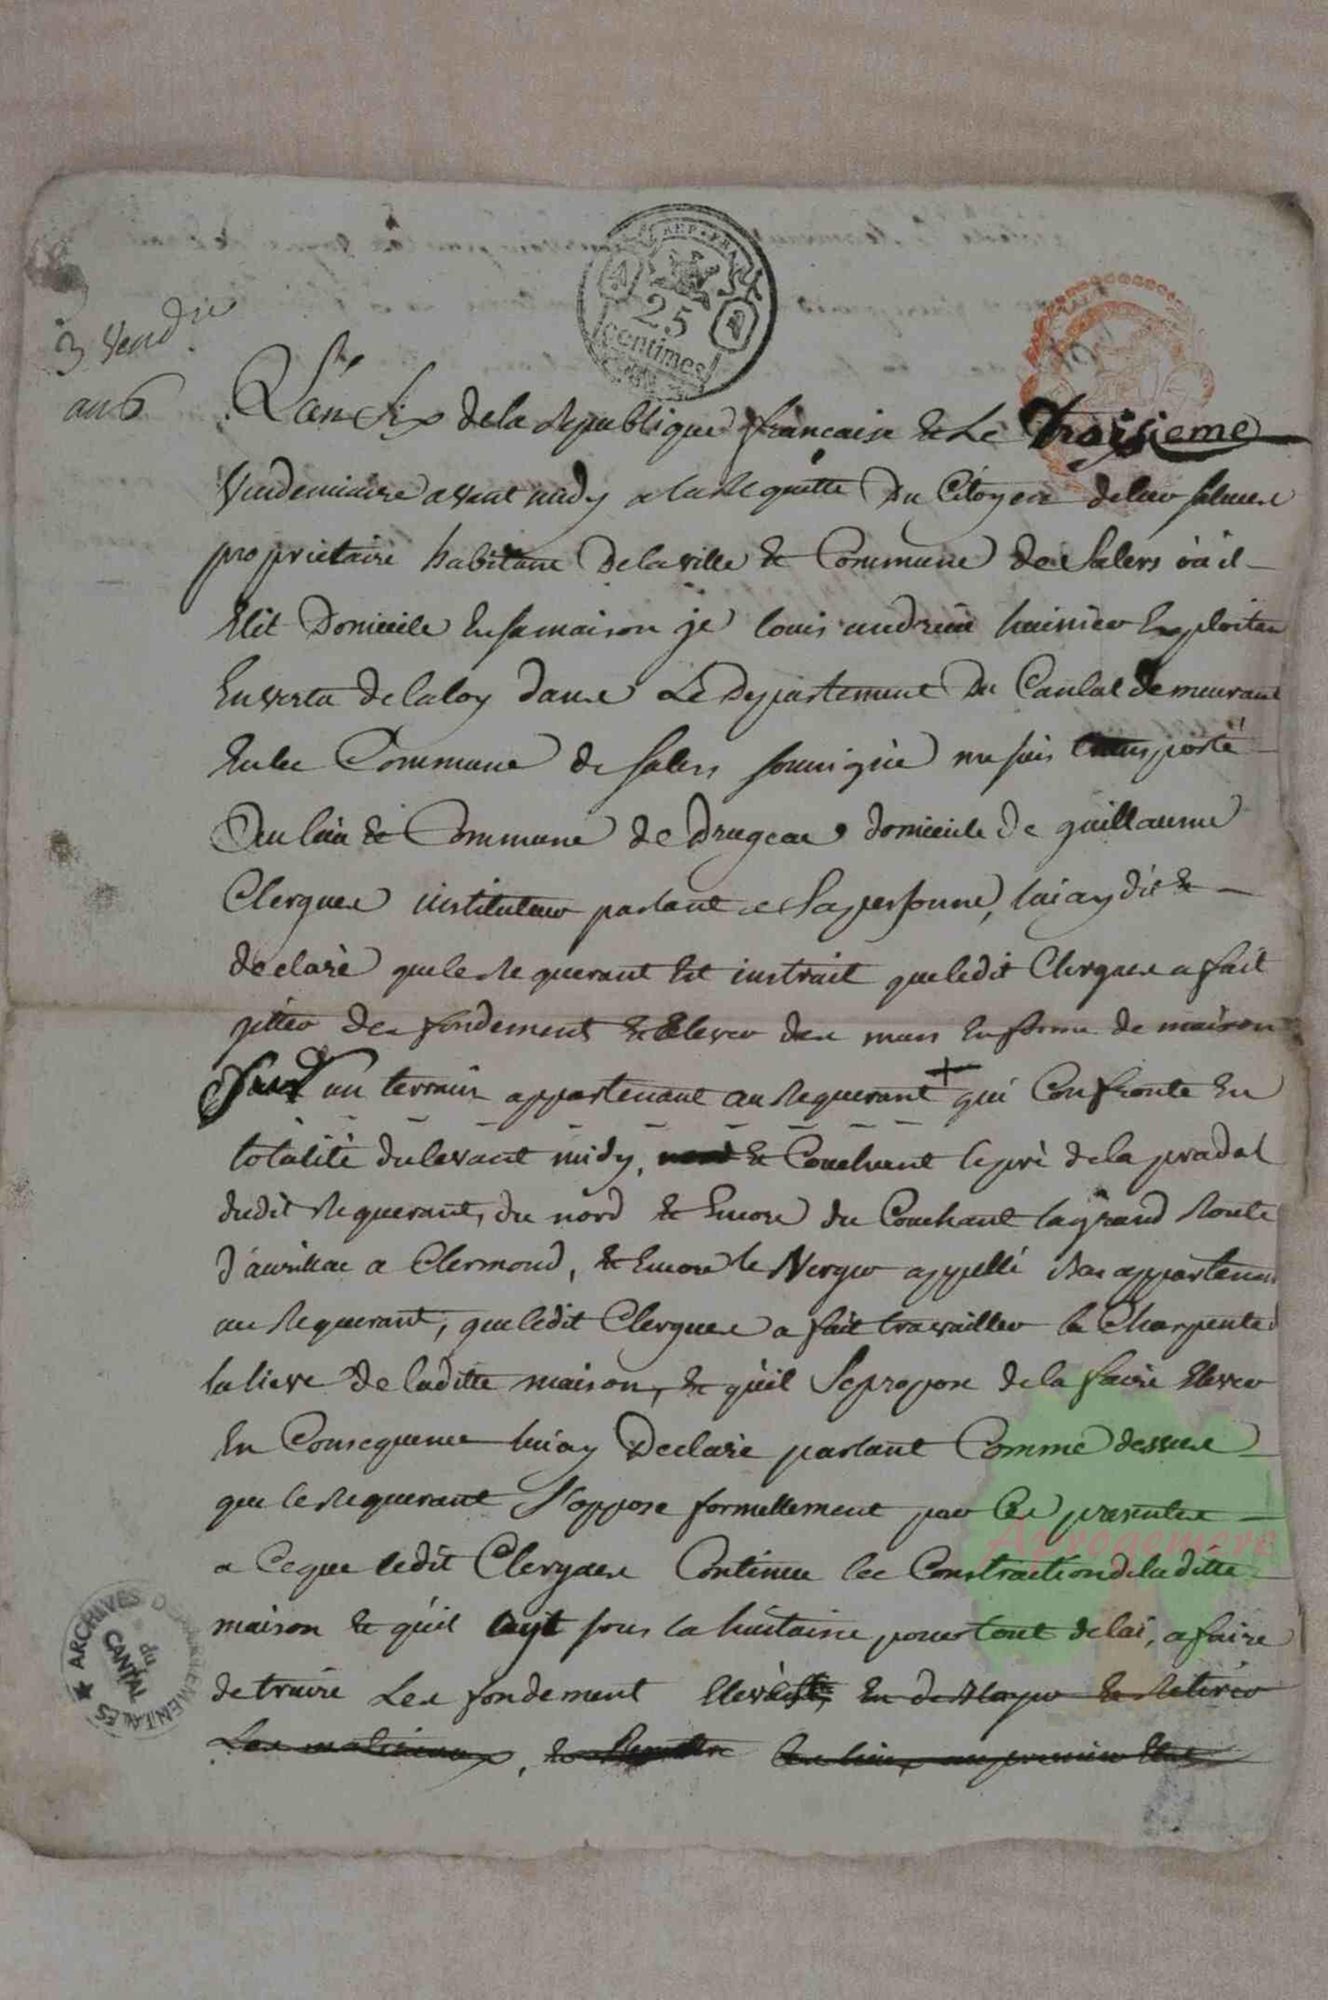 REP. FRA
25
centimes
3 Vend.re
an 6
L'an Six de la Republique francaise & Le Troisieme
Vendemiaire avant midy a la Requette Du Citoyen
proprietaire habitant De la ville & Commune de Salers ou il
Elit Domicile En sa maison je louis andrieu huissier Exploitan
En vertu de la loy dans Le Departement Du Cantal Demeurant
En la Commune de Salers soussigné me suis transporté
Au lieu & Commune de Drugeac domicile De guillaume
Clergues instituteur parlant a Sa personne, luiay dit &
declaré que le Requerant Est instruit que ledit Clergues a fait
jitter des fondement & Elever des murs En forme de maison
Sur un terrain appartenant au Requerant + qui Confronte En
totalité du levant midy, & Couchant le pré de la pradal
dudit Requerant, du nord & Encore du Couchant la grand Route
d'aurillac a Clermond, & Encore le Verger appellé appartenan
au Requerant, que ledit Clergues a fait travailler la Charpente d
la lieve de laditte maison, & qu'il Se propose de la faire Elever
En Consequence luiay Declaré parlant Comme dessus
que le Requerant S'oppose formellement par Ces presentes
a Ceque ledit Clergues Continue la Construction de laditte
maison & qu'il ayt sous la huitaine pour tout delai, a faire
detruire Les fondement Elevés, En & Retirer
Les materiaux, & Remettre Les lieux au premier Etat
ARCHIVES DEPARTEMENTALES
du
CANTAL
Aprogemere